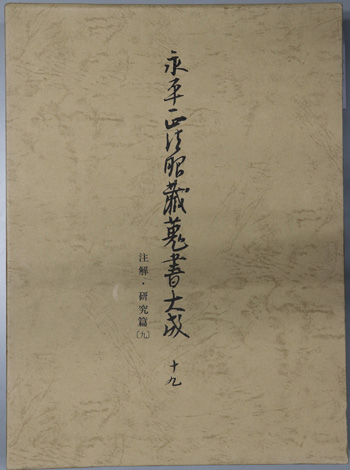 永平正法眼蔵蒐書大成 十九
注解・研究篇〔九〕